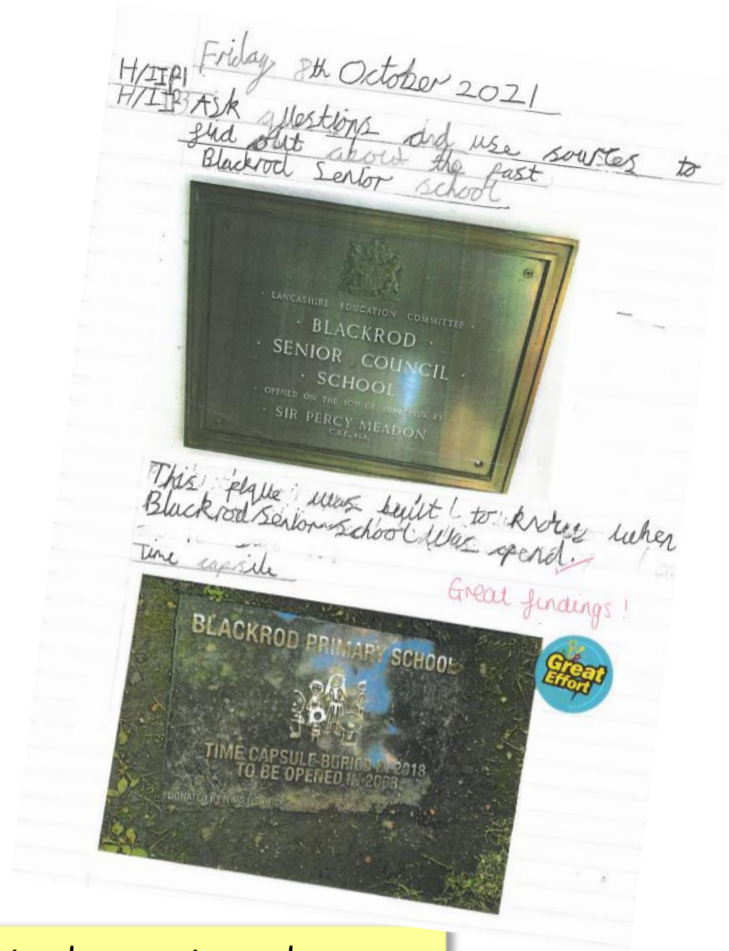 Friday 8th October 2021
H/II P1
H/II P3 Ask questions and use sources to
find out about the past
Blackrod Senior school
· LANCASHIRE EDUCATION COMMITTEE ·
· BLACKROD ·
SENIOR COUNCIL
· SCHOOL ·
OPENED ON THE 10TH OF BY
· SIR PERCY MEADON ·
C.B.E., M.A.
This plque was built to know when
Blackrod Senior School was opend.
Time capsule
Great findings!
Great
Effort
BLACKROD PRIMARY SCHOOL
TIME CAPSULE BURIED IN 2018
TO BE OPENED IN 2068
DONATED BY